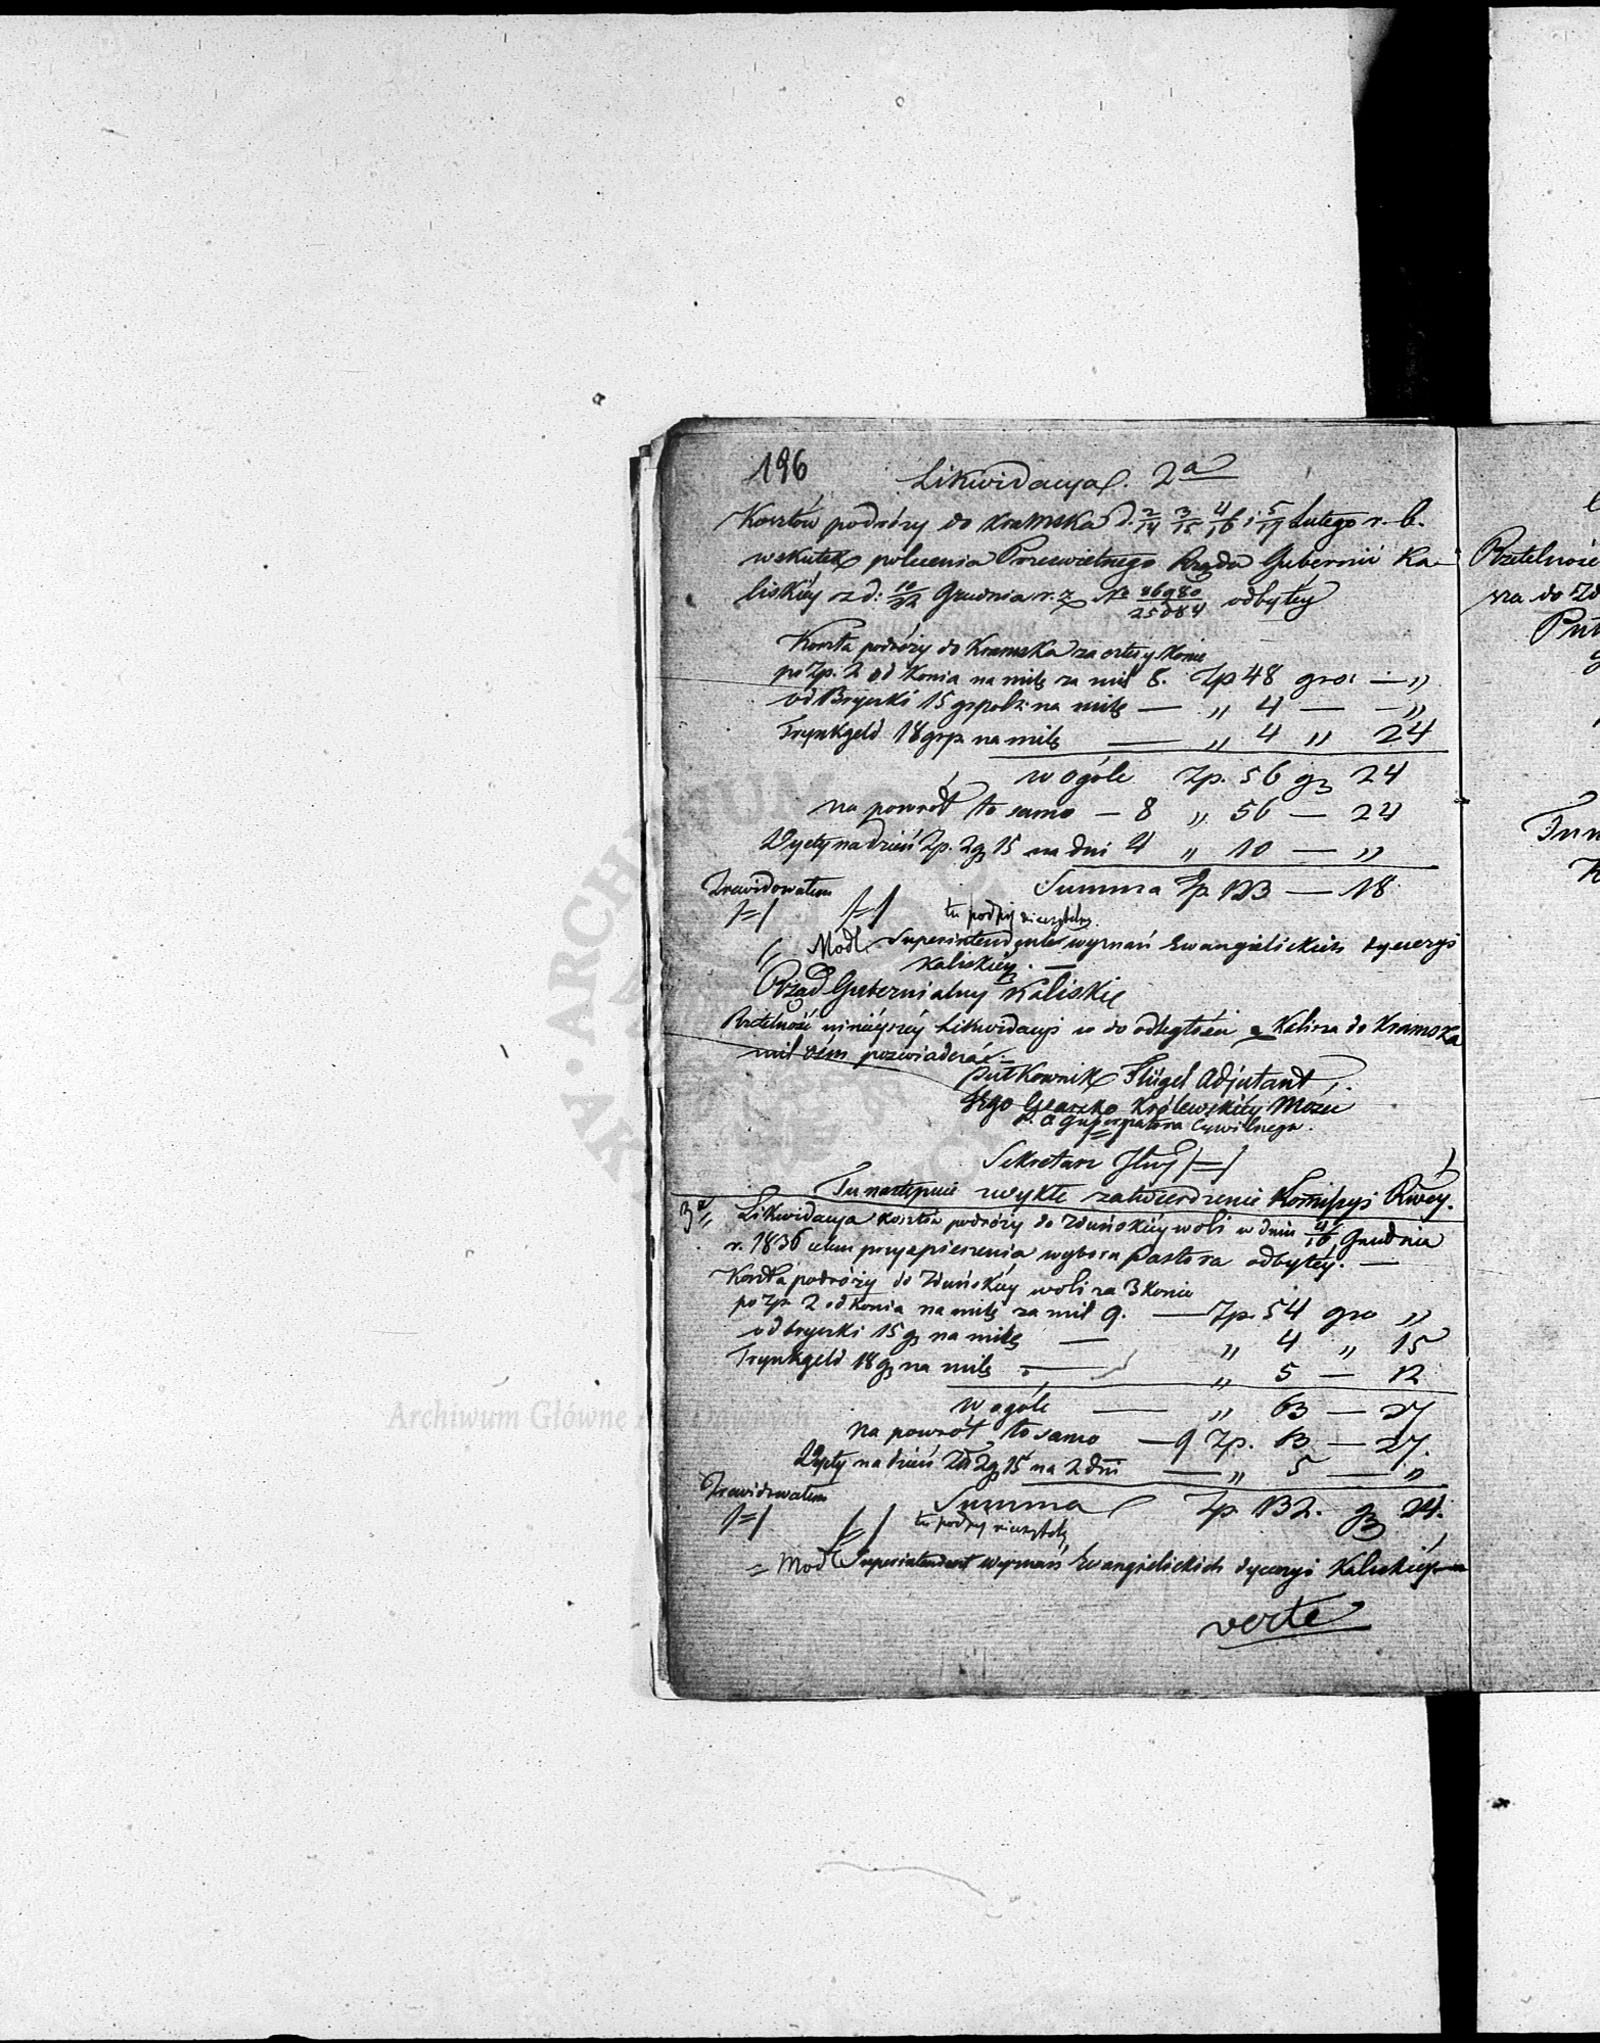 196
Likwidacya. 2a
Kosztów podróży do Kramska d. 2/14 3/15 4/16 i 5/17 Lutego r. b.
wskutek polecenia Prześwietnego Rządu Gubernii Ka-
liskiéy z d: 10/22 Grudnia r. z. No 86980/25084 odbytéy
Koszta podróży do Kramska za cztery Konie
po Zp. 2 od Konia na milę za mil 8. Zp 48 gro: — „
od Bryczki 15 gr polz: na milę — „ 4 — — „
Trynkgeld 18 grp. na milę — „ 4 „ 24
w ogóle Zp. 56 gr 24
na powrót to samo — 8 „ 56 — 24
Dyety na dzień Zp. 2 gr 15 na dni 4 „ 10 — „
Zrewidowałem Summa Zp 123 — 18
/=/ /=/ tu podpis nieczytelny.
Modl. Superintendent wyznań Ewangielickich dyecezyi
Kaliskiéy. —
Rząd Gubernialny Kaliski
Rzetelność niniéyszéy Likwidacyi co do odległości z Kalisza do Kramska
mil ośm poświadcza. —
Pułkownik Flügel Adjutant
Jego Cesarsko Królewskiéy Mości
p. o Gubernatora Cywilnego.
/=/
Sekretarz Jlny /=/
Tu następuie zwykłe zatwierdzenie Kommissyi Rwéy.
3a „ Likwidacya kosztów podróży do Zduńskiéy woli w dniu 4/16 Grudnia
r. 1836 celem przyspieszenia wyboru Pastora odbytéy. —
Koszta podróży do Zduńskiéy woli za 3 konie
po zp. 2 od Konia na milę za mil 9. — Zp. 54 gro „
od bryczki 15 gr na milę — „ 4 „ 15
Trynkgeld 18 gr na milę — „ 5 — 12
w ogóle — „ 63 — 27
na powrót to samo — 9 Zp. 63 — 27.
Dyety na dzień Zł 2 gr 15 na 2 dni — „ 5 — „
Zrewidowałem Summa Zp 132. gr 24.
/=/ /=/ tu podpis nieczytelny
= Modl Superintendent wyznań Ewangielickich dyecezyi Kaliskiéy —
verte
Rzetelność
sza do Zd
Archiwum Główne Akt Dawnych